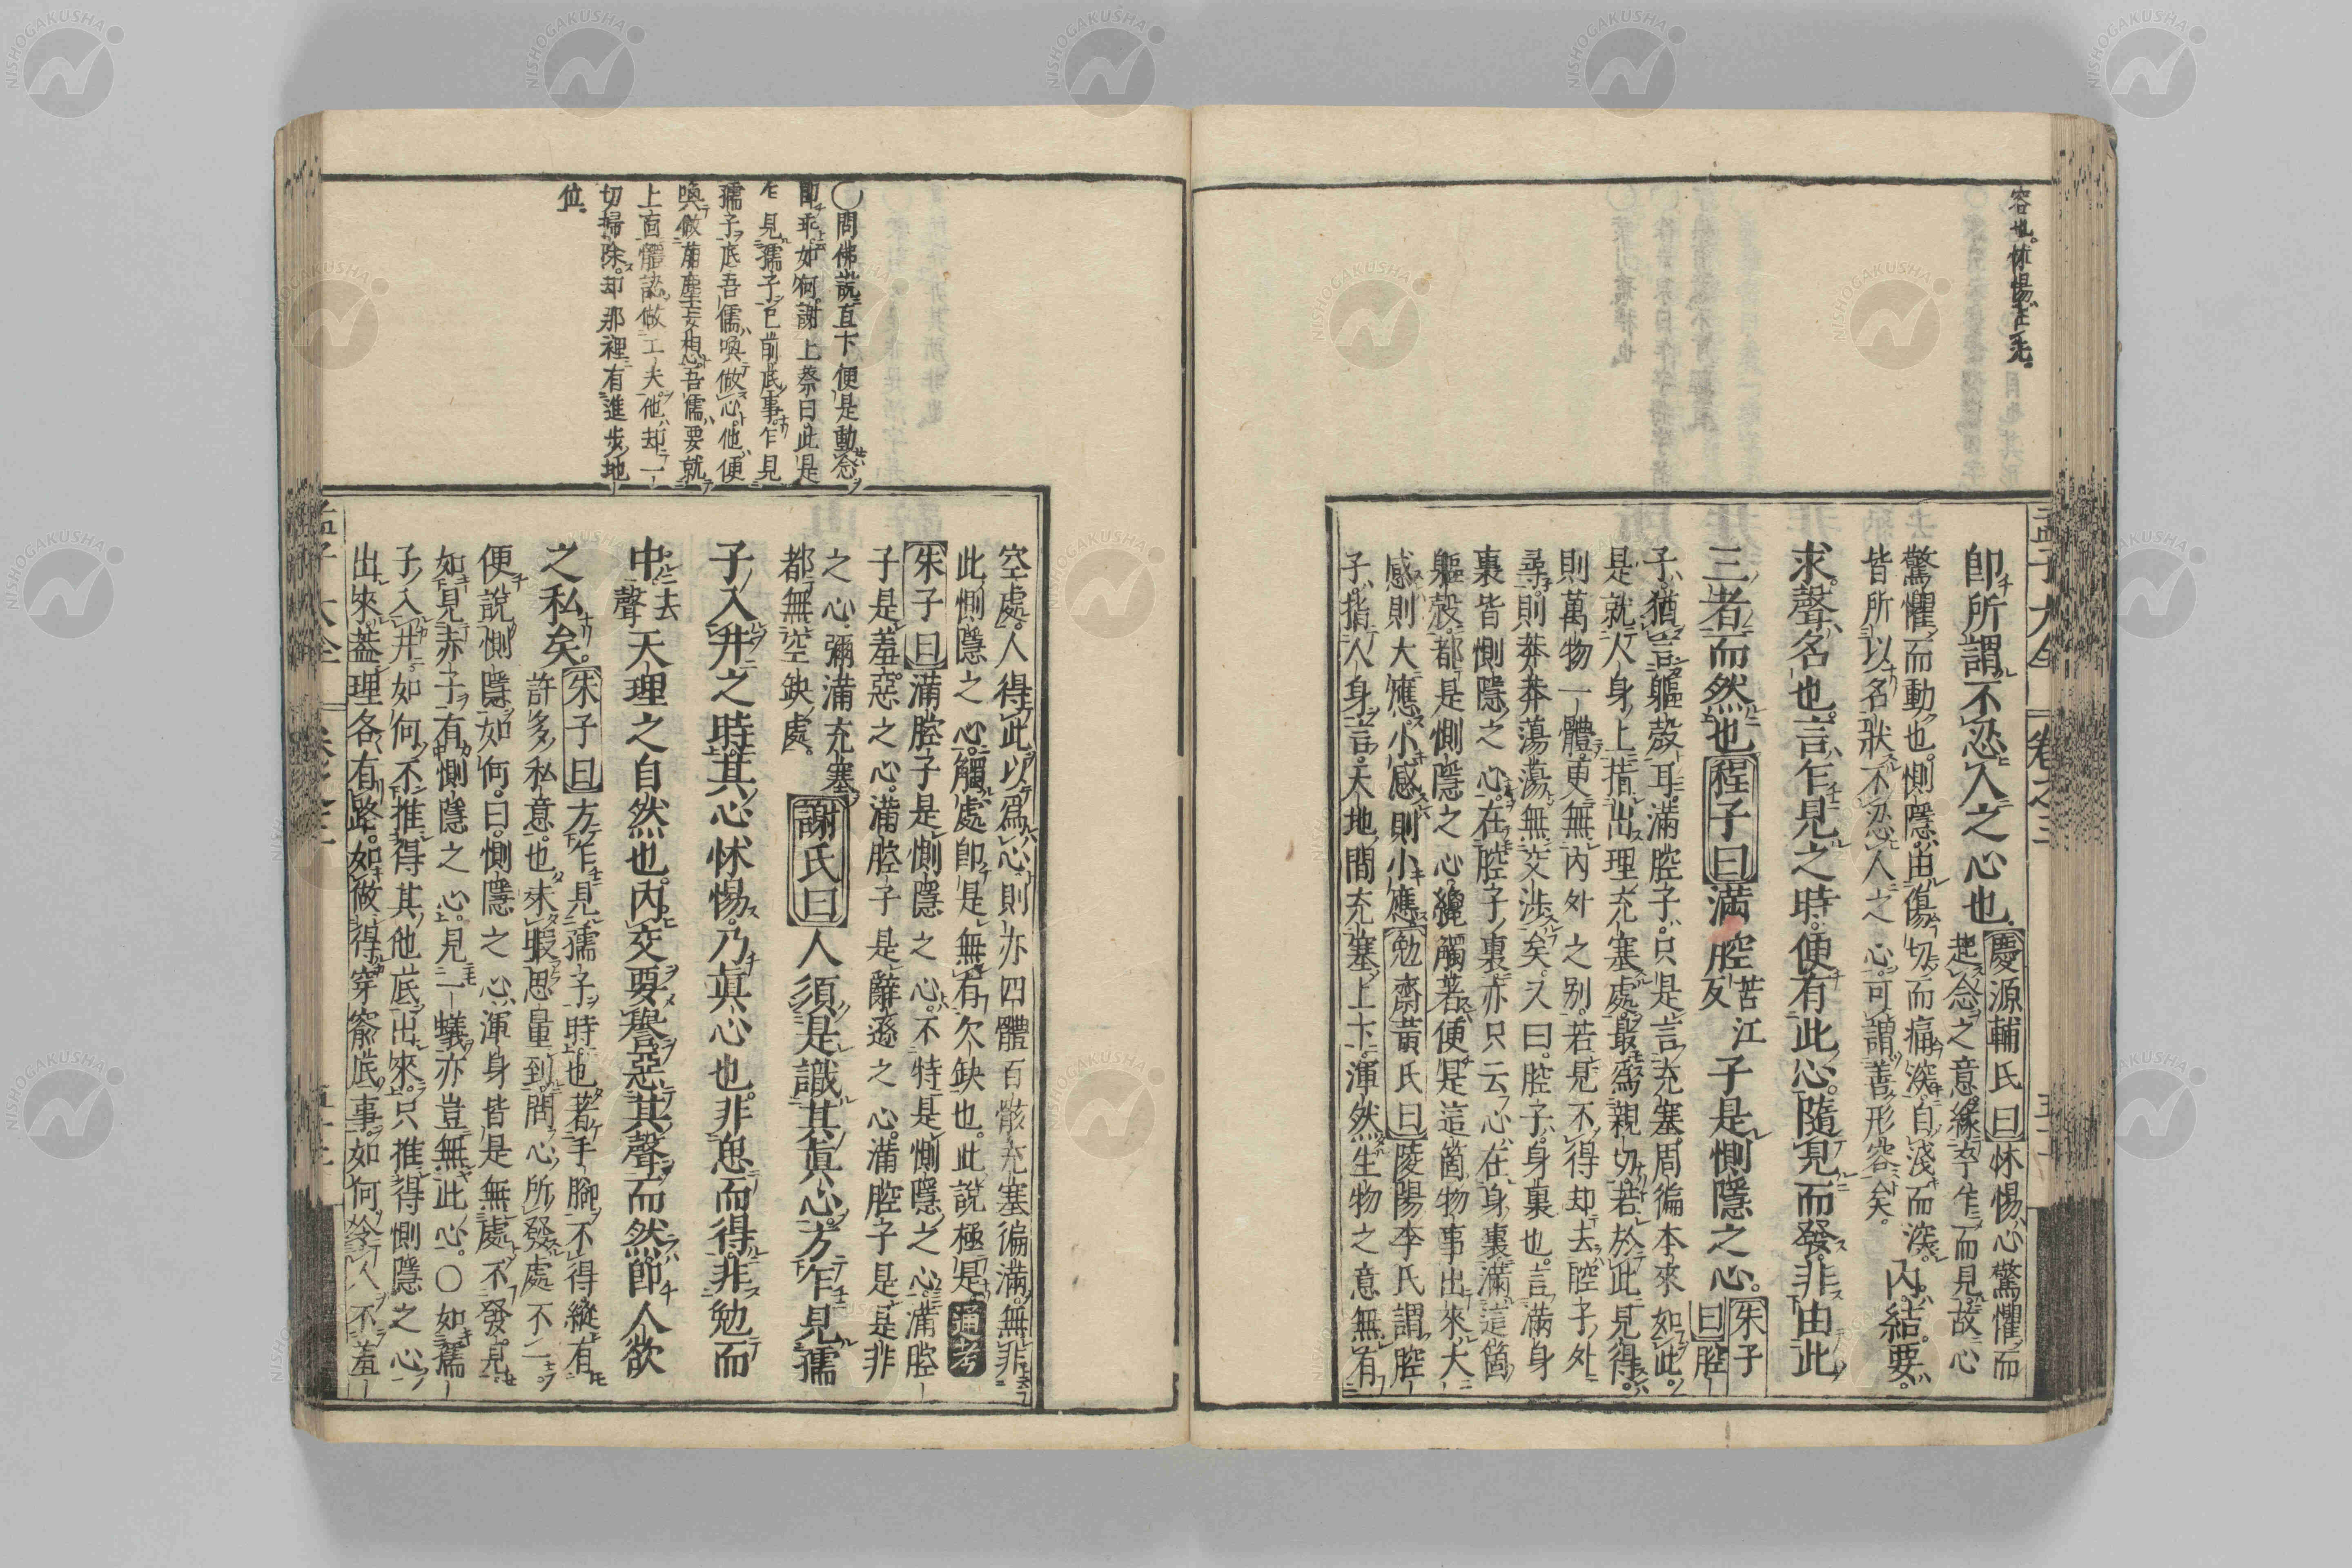 容也。怵惕在先。
孟子大全 卷之三
即所謂不忍人之心也。慶源輔氏曰怵惕心驚懼而
起念之意。緣卒乍而見。故心
驚懼而動也。惻隱。由傷切而痛深。自淺而深。
皆所以名狀不忍人之心。可謂善形容矣。内。結。要。
求。聲。名也。言乍見之時。便有此心。隨見而發。非由此
三者而然也程子曰滿腔苦江反子是惻隱之心。朱子曰腔
子。猶言軀殼耳。滿腔子。只是言充塞。周徧本來如此。
是就人身上指出理充塞處。最爲親切。若於此見得。
則萬物一體。更無内外之別。若見不得却去腔子外
尋。則莽莽蕩蕩無交渉矣。又曰。腔子。身裏也。言滿身
裏皆惻隱之心。在腔子裏。亦只云心在身裏滿這箇
軀殼。都是惻隱之心。纔觸著便是這箇物事出來。大
感則大應。小感則小應。勉齋黄氏曰陵陽李氏謂腔
子。指人身言。天地間充塞上下。渾然生物之意無有
○問佛説直下便是動念
即乖。如何。謝上蔡曰。此是
乍見孺子已前底事。乍見
孺子底吾儒喚做心。他便
喚做前塵妄想。吾儒要就
上面體認做工夫。他却一
切掃除。却那裡有進歩地
位。
空處。人得此以爲心。則亦四體百骸充塞徧滿。無非
此惻隱之心。觸處即是。無有欠缺也。此説極是。通考
朱子曰滿腔子是惻隱之心。不特是惻隱之心。滿腔
子是羞惡之心。滿腔子是辭遜之心。滿腔子是是非
之心。彌滿充塞。
都無空缺處。謝氏曰人須是識其眞心。方乍見孺
子入井之時。其心怵惕。乃眞心也。非思而得。非勉而
中。去聲天理之自然也。内交要譽惡其聲而然。即人欲
之私矣。朱子曰方乍見孺子時也。著手腳不得縱有
許多私意。也未暇思量到。問心所發處不一。
便説惻隱如何。曰。惻隱之心。渾身皆是無處不發。見
如見赤子有惻隱之心。見一蟻亦豈無此心。○如孺
子入井如何不推得其他底出來。只推得惻隱之心
出來。蓋理各有路。如做得穿窬底事。如何令人不羞
孟子大全 卷之三